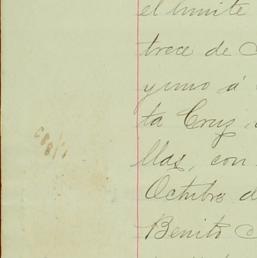 el limite
trece de
yuno á
ta Cruz,
llas, con
Octubre d
Benito C